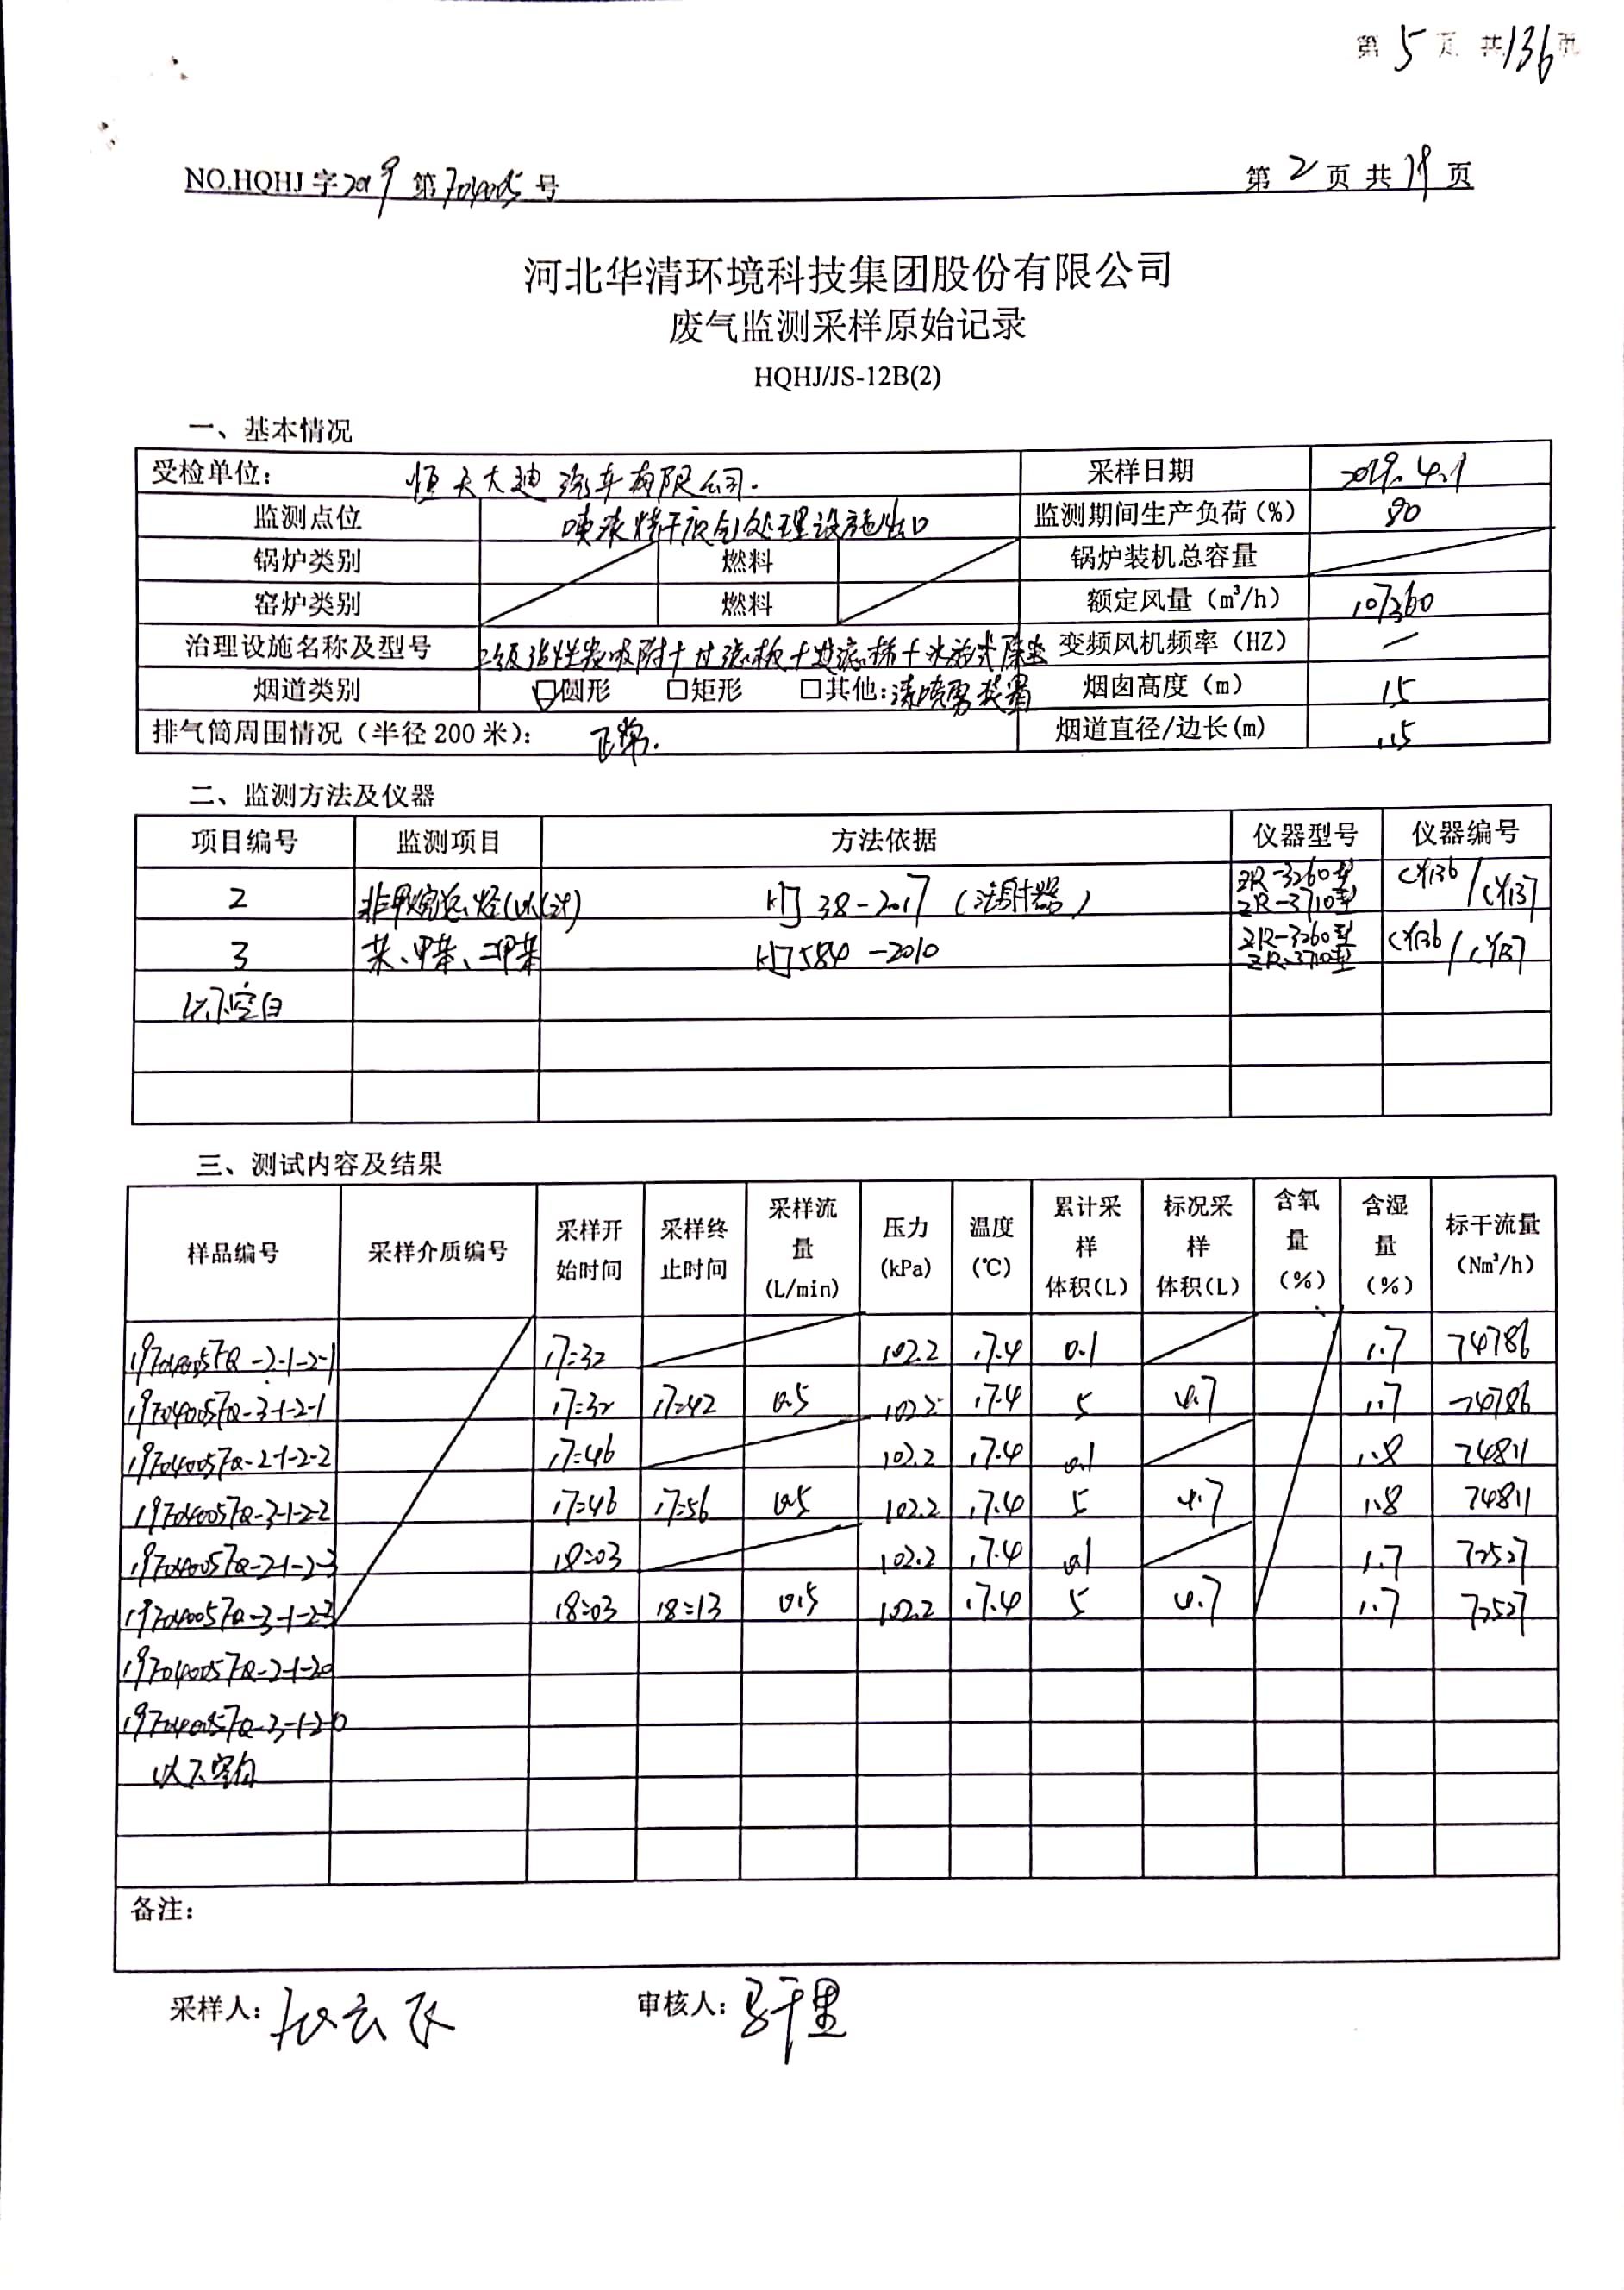 第5页 共136页
NO.HQHJ 字2019第704005号 第2页共19页
河北华清环境科技集团股份有限公司
废气监测采样原始记录
HQHJ/JS-12B(2)
一、基本情况
受检单位: 恒天大迪汽车有限公司. 采样日期 2019.4.1
监测点位 喷漆烤干废气处理设施出口 监测期间生产负荷(%) 80
锅炉类别 燃料 锅炉装机总容量
窑炉类别 燃料 额定风量(m³/h) 107360
治理设施名称及型号 二级活性炭吸附+过滤板+过滤棉+水浴式除尘 变频风机频率(HZ) —
烟道类别 ☑圆形 □矩形 □其他:漆喷雾装置 烟囱高度(m) 15
排气筒周围情况(半径200米): 正常. 烟道直径/边长(m) 1.5
二、监测方法及仪器
项目编号 监测项目 方法依据 仪器型号 仪器编号
2 非甲烷总烃(以C计) HJ 38-2017(注射器) ZR-3260型 ZR-3710型 CY136/CY137
3 苯、甲苯、二甲苯 HJ 584-2010 ZR-3260型 ZR-3710型 CY136/CY137
以下空白
三、测试内容及结果
样品编号 采样介质编号 采样开始时间 采样终止时间 采样流量(L/min) 压力(kPa) 温度(℃) 累计采样体积(L) 标况采样体积(L) 含氧量(%) 含湿量(%) 标干流量(Nm³/h)
19704005FQ-2-1-2-1 17:32 102.2 17.4 0.1 1.7 74786
19704005FQ-3-1-2-1 17:32 17:42 0.5 102.2 17.4 5 4.7 1.7 74786
19704005FQ-2-1-2-2 17:46 102.2 17.4 0.1 1.8 74811
19704005FQ-3-1-2-2 17:46 17:56 0.5 102.2 17.4 5 4.7 1.8 74811
19704005FQ-2-1-2-3 18:03 102.2 17.4 0.1 1.7 72527
19704005FQ-3-1-2-3 18:03 18:13 0.5 102.2 17.4 5 4.7 1.7 72527
19704005FQ-2-1-2-0
19704005FQ-3-1-2-0
以下空白
备注:
采样人: 审核人: